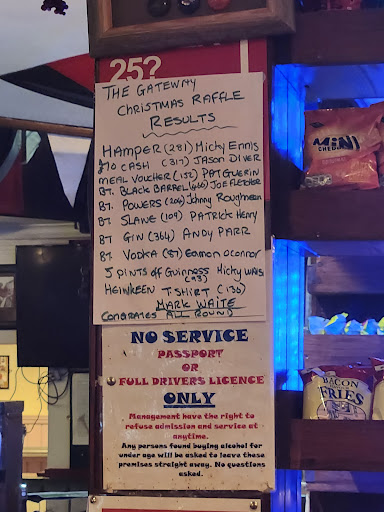 25?
THE GATEWAY
CHRISTMAS RAFFLE
RESULTS
HAMPER (281) Micky Ennis
€70 CASH (317) JASON DIVER
MEAL VOUCHER (152) PAT GUERIN
BT. BLACK BARREL (460) JOE FLETCHER
BT. POWERS (206) Johnny Roughneen
BT. SLANE (109) PATRICK Henry
BT GIN (364) ANDY PARR
BT VODKA (87) Eamon O'Connor
5 PINTS of Guinness Micky WAS
(93)
HEINEKEEN T. SHIRT (136)
MARK WAITE
CONGRATES ALL ROUND
NO SERVICE
PASSPORT
OR
FULL DRIVERS LICENCE
ONLY
Management have the right to
refuse admission and service at
anytime.
Any persons found buying alcohol for
under age will be asked to leave these
premises straight away. No questions
asked.
MINI
CHEDDARS
BACON
FRIES